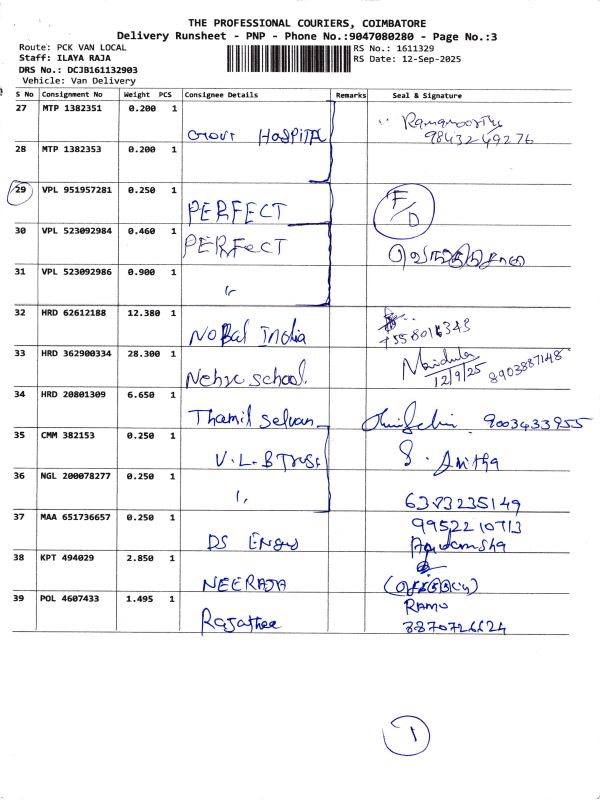 THE PROFESSIONAL COURIERS, COIMBATORE
Delivery Runsheet - PNP - Phone No.:9047080280 - Page No.:3
Route: PCK VAN LOCAL RS No.: 1611329
Staff: ILAYA RAJA RS Date: 12-Sep-2025
DRS No.: DCJB161132903
Vehicle: Van Delivery
S No Consignment No Weight PCS Consignee Details Remarks Seal & Signature
27 MTP 1382351 0.200 1 Govt HOSPITAL Ramamoorthy
9843249276
28 MTP 1382353 0.200 1
29 VPL 951957281 0.250 1 PERFECT F/D
30 VPL 523092984 0.460 1 PERFECT
31 VPL 523092986 0.900 1 "
32 HRD 62612188 12.380 1 Nobal India
33 HRD 362900334 28.300 1 Nehru School Mridula
12/9/25 8903887148
34 HRD 20801309 6.650 1 Thamil Selvan 9003433955
35 CMM 382153 0.250 1 V.L.B Trust S. Anitha
36 NGL 200078277 0.250 1 " 6383235149
37 MAA 651736657 0.250 1 DS Engg 9952210713
38 KPT 494029 2.850 1 NEERAJA
39 POL 4607433 1.495 1 Rajathee RAMU
8870726624
1